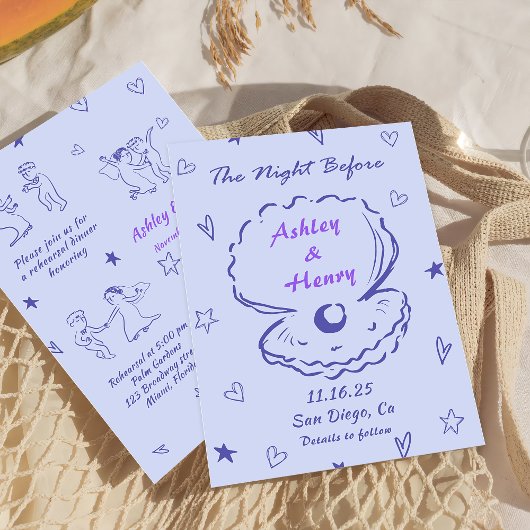 The Night Before
Ashley
&
Henry
11.16.25
San Diego, Ca
Details to follow
Please join us for
a rehearsal dinner
honoring
Ashley &
Novem
Rehearsal at 5:00 pm
Palm Gardens
123 Broadway stre
Miami, Florid